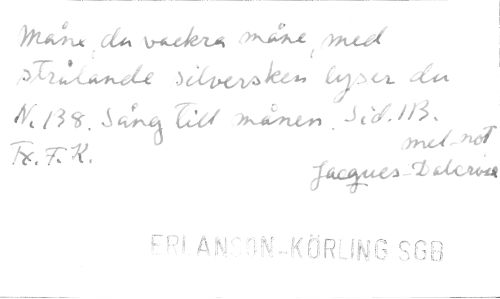 Måne, du vackra måne, med
strålande silversken lyser du
N. 138. Sång till månen. Sid. 113.
Tx. F. K.
mel-not
Jacques-Dalcroze
ERLANSON-KÖRLING SGB